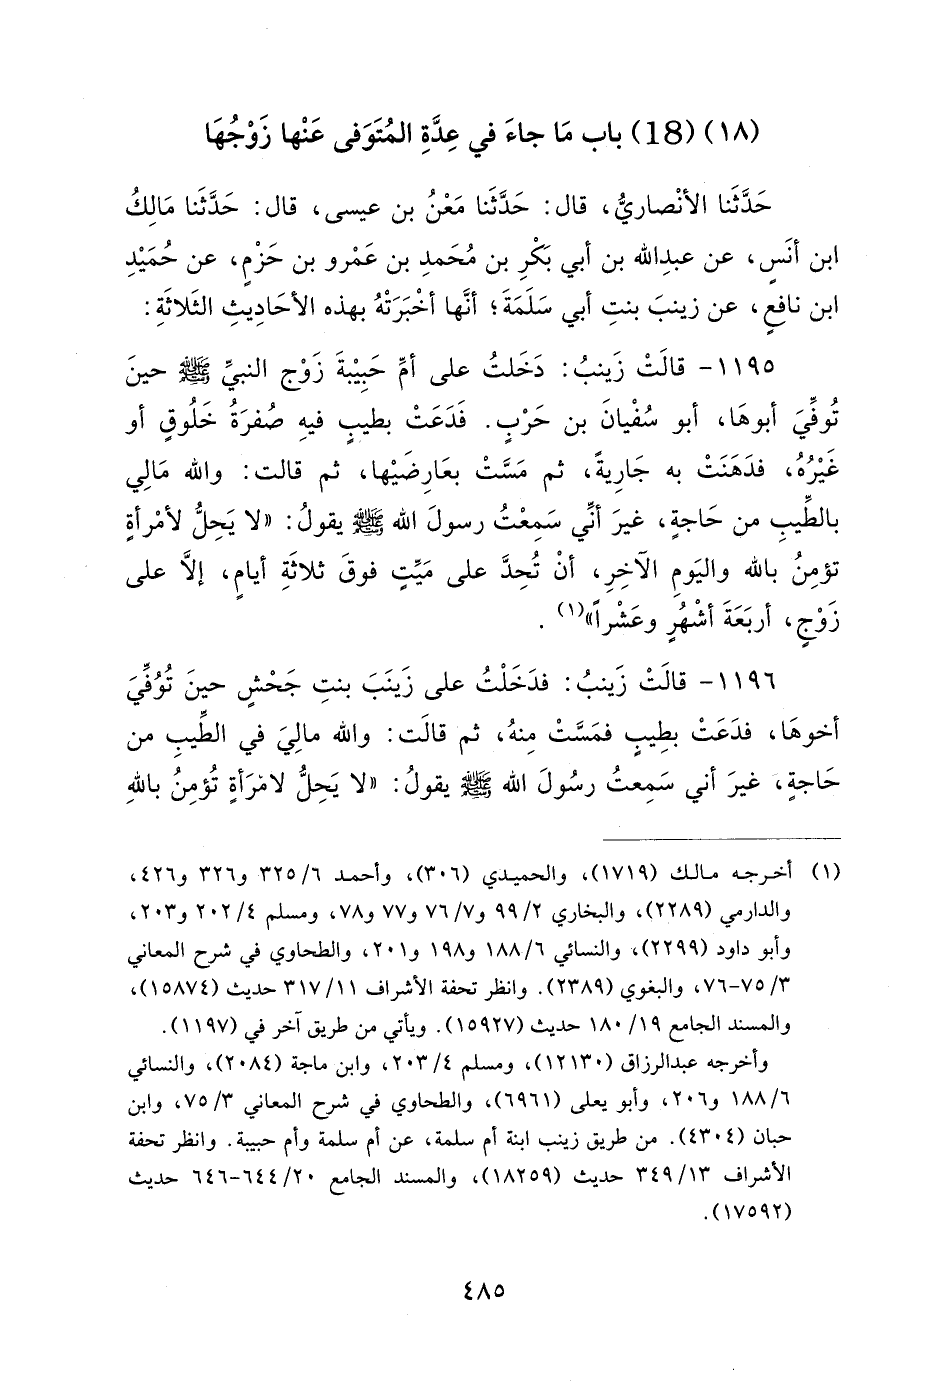 (١٨) (18) باب مَا جاءَ في عِدَّةِ المُتَوَفى عَنْها زَوْجُهَا
حَدَّثَنا الأنْصاريُّ، قال: حَدَّثَنا مَعْنُ بن عيسى، قال: حَدَّثَنا مَالكُ
ابن أنَسٍ، عن عبدِالله بن أبي بَكْرِ بن مُحَمدِ بن عَمْرو بن حَزْمٍ، عن حُمَيْدِ
ابن نافعٍ، عن زينبَ بنتِ أبي سَلَمَةَ؛ أنَّها أخْبَرَتْهُ بهذه الأحَادِيثِ الثَلاثَةِ:
١١٩٥- قالَتْ زَينبُ: دَخَلتُ على أمِّ حَبِيْبةَ زَوْجِ النبيِّ ﷺ حينَ
تُوفِّيَ أبوهَا، أبو سُفْيانَ بن حَرْبٍ. فَدَعَتْ بطيبٍ فيهِ صُفرَةُ خَلُوقٍ أو
غَيْرُهُ، فدَهَنَتْ به جَاريةً، ثم مَسَّتْ بعَارضَيْها، ثم قالت: والله مَالِي
بالطِّيبِ من حَاجةٍ، غيرَ أنِّي سَمِعْتُ رسولَ الله ﷺ يقولُ: «لا يَحِلُّ لأمْرأةٍ
تؤمِنُ بالله واليَومِ الآخِرِ، أنْ تُحِدَّ على مَيِّتٍ فوقَ ثلاثَةِ أيامٍ، إلاَّ على
زَوْجٍ، أربَعَةَ أشْهُرٍ وعَشْراً»(١) .
١١٩٦- قالَتْ زَينبُ: فدَخَلْتُ على زَينَبَ بنتِ جَحْشٍ حينَ تُوُفِّيَ
أخوهَا، فدَعَتْ بطِيبٍ فمَسَّتْ مِنهُ، ثم قالَت: والله مالِيَ في الطِّيبِ من
حَاجةٍ، غيرَ أني سَمِعتُ رسُولَ الله ﷺ يقولُ: «لا يَحِلُّ لامْرَأةٍ تُؤمِنُ باللهِ
(١) أخرجه مالك (١٧١٩)، والحميدي (٣٠٦)، وأحمد ٦/ ٣٢٥ و٣٢٦ و٤٢٦،
والدارمي (٢٢٨٩)، والبخاري ٢/ ٩٩ و٧/ ٧٦ و٧٧ و٧٨، ومسلم ٤/ ٢٠٢ و٢٠٣،
وأبو داود (٢٢٩٩)، والنسائي ٦/ ١٨٨ و١٩٨ و٢٠١، والطحاوي في شرح المعاني
٣/ ٧٥-٧٦، والبغوي (٢٣٨٩). وانظر تحفة الأشراف ١١/ ٣١٧ حديث (١٥٨٧٤)،
والمسند الجامع ١٩/ ١٨٠ حديث (١٥٩٢٧). ويأتي من طريق آخر في (١١٩٧).
وأخرجه عبدالرزاق (١٢١٣٠)، ومسلم ٤/ ٢٠٣، وابن ماجة (٢٠٨٤)، والنسائي
٦/ ١٨٨ و٢٠٦، وأبو يعلى (٦٩٦١)، والطحاوي في شرح المعاني ٣/ ٧٥، وابن
حبان (٤٣٠٤). من طريق زينب ابنة أم سلمة، عن أم سلمة وأم حبيبة. وانظر تحفة
الأشراف ١٣/ ٣٤٩ حديث (١٨٢٥٩)، والمسند الجامع ٢٠/ ٦٤٤-٦٤٦ حديث
(١٧٥٩٢).
٤٨٥